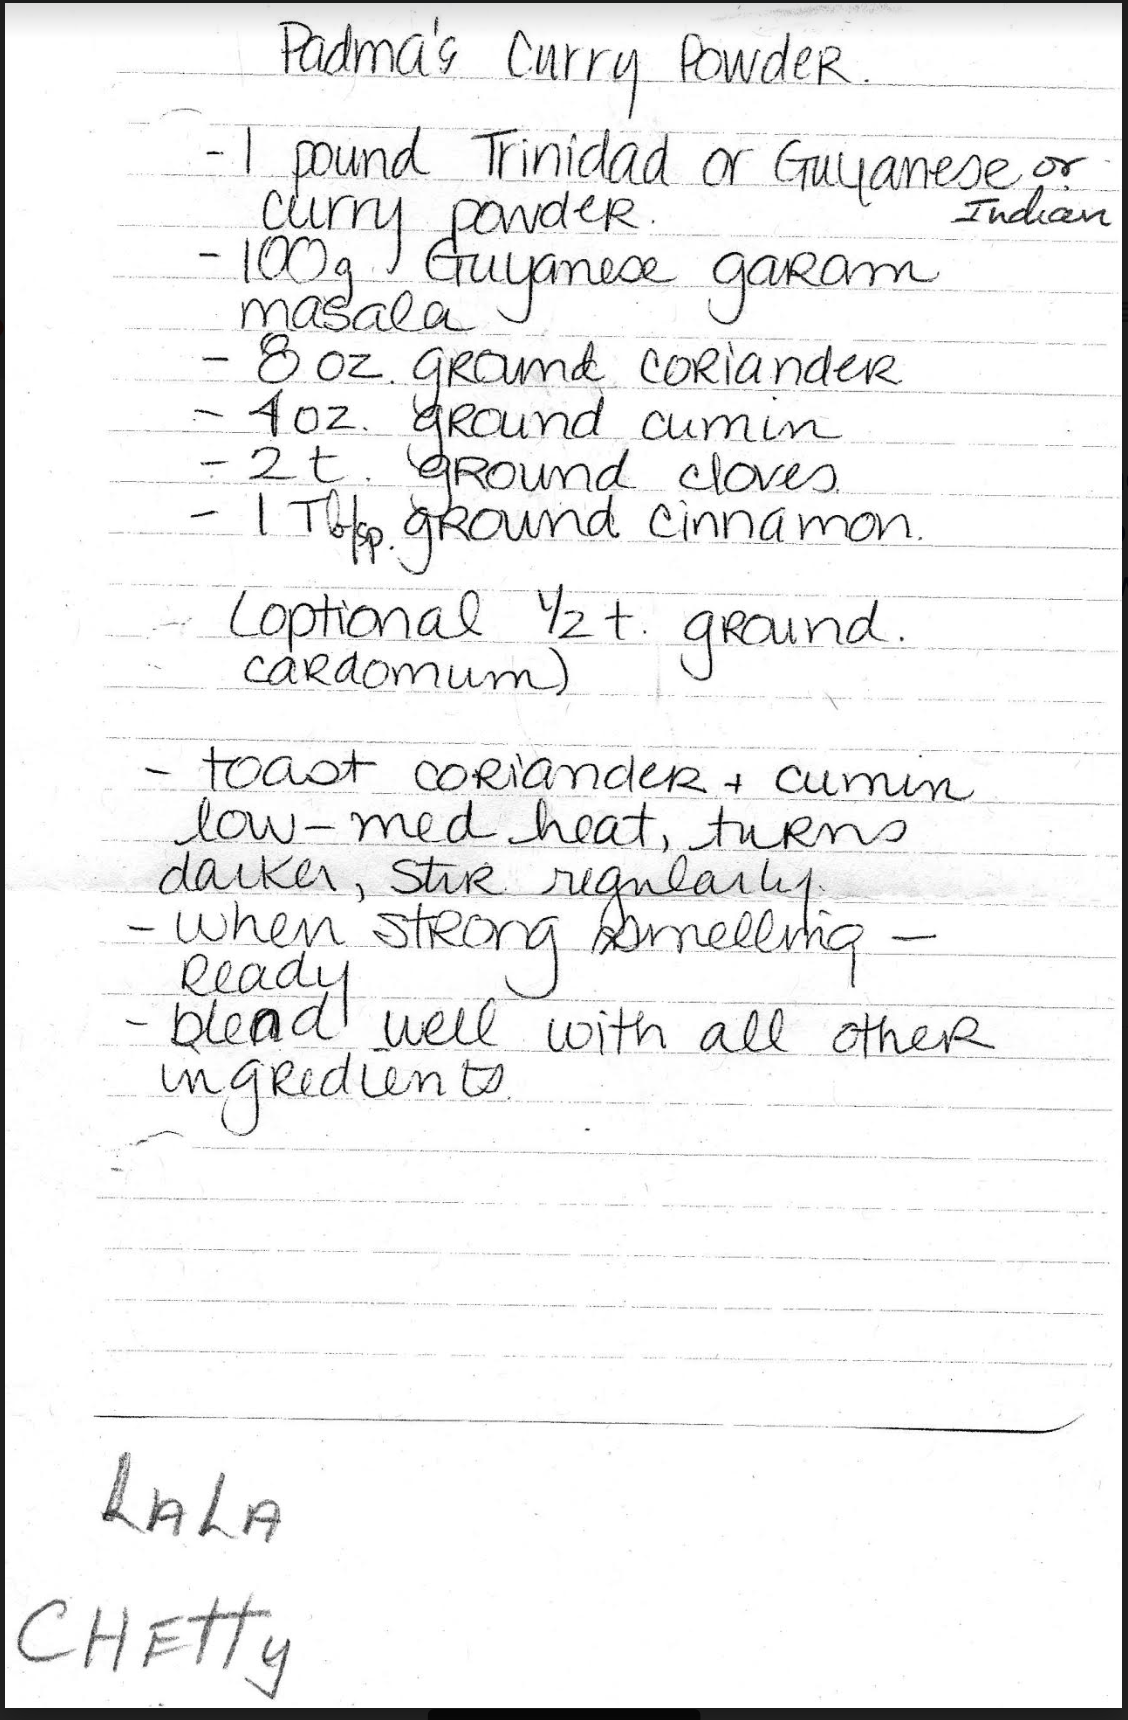 Padma's Curry Powder.
- 1 pound Trinidad or Guyanese or
curry powder. Indian
- 100g Guyanese garam
masala
- 8 oz. ground coriander
- 4 oz. ground cumin
- 2 t. ground cloves.
- 1 Tblsp. ground cinnamon.
(optional 1/2 t. ground.
cardomum)
- toast coriander + cumin
low-med heat, turns
darker, stir regularly.
- when strong smelling -
Ready
- blend well with all other
ingredients.
LALA
CHETTY